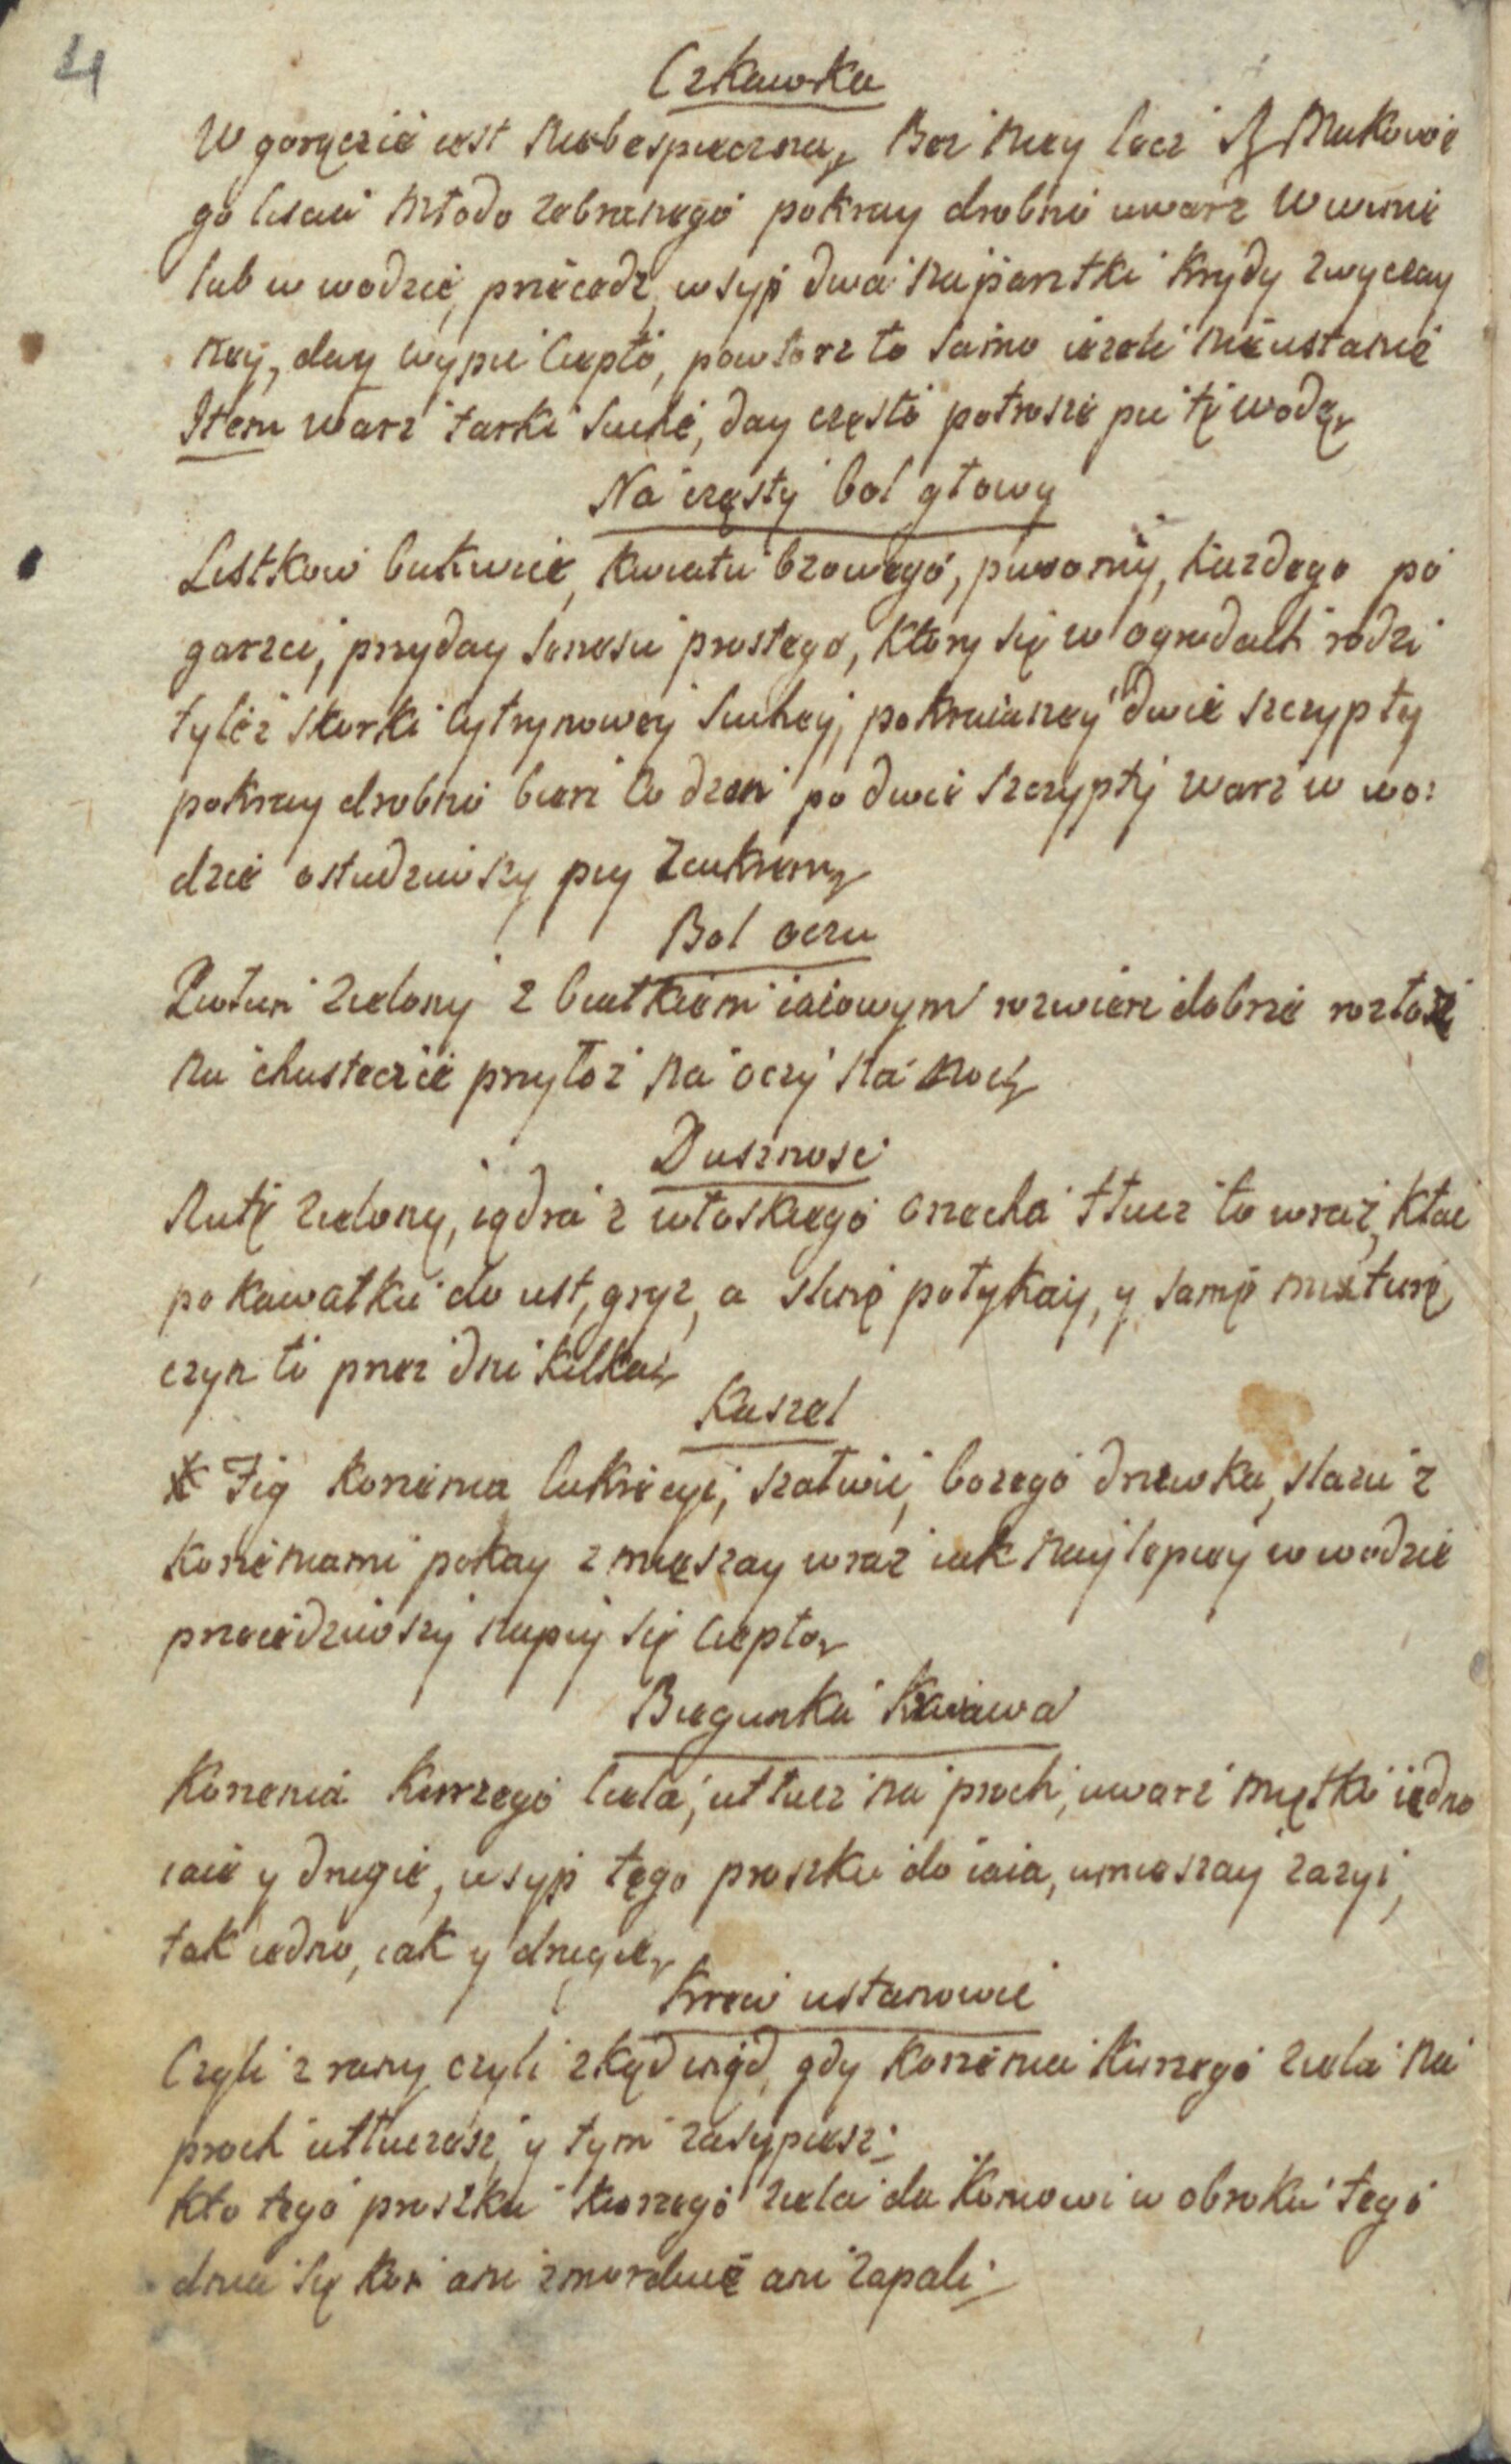 4
Czkawka
W gorączcie iest niebespieczna, Bez niey lecz ꝶ Makowe
go liscia młodo zebranego pokray drobno uwarz w winie
lub w wodzie, przecedz, wsyp dwa naparstki krydy zwyczay
ney, day wypić ciepło, powtorz to samo iezeli nieustanie
Item warz tarki suche, day często potrosze pić tę wodę,
Na częsty bol głowy
Listkow bukwice, kwiatu bzowego, piwonij, każdego po
garzci, przyday senesu prostego, ktory się w ogrodach rodzi
tyleż skorki cytrynowey suchey, pokraianey dwie szczypty
pokray drobno bierz co dzeń po dwie szczypty warz w wo:
dzie ostudziwszy piy z cukrem,
Bol oczu
Piołun zielony z białkiem iaiowym rozwierc dobrze rozłoż
na chusteczce przyłoż na oczy na noc,
Dusznosc
Rutę zieloną, iądra z włoskiego orzecha tłucz to wraz, kłać
po kawałku do ust, gryz, a slinę połykay, y samę mixturę,
czyn to przez dni kilka,
Kaszel
* Fig korzenia lukrecyi, szałwii, bozego drzewka, slazu z
korzeniami pokay zmięszay wraz iak naylepiey w wodzie
przecedziwszy napiy się ciepło,
Biegunka krwawa
Korzenia kurzego ziela, utłucz na proch, uwarz miętko iedno
iaie y drugie, wsyp tego proszku do iaia, umieszay zazyi,
tak iedno, iak y drugie,
Krew ustanowić
Czyli z rany czyli zkąd inąd, gdy korzenia kurzego ziela na
proch utłuczesz, y tym zasypiesz:
Kto tego proszku kurzego ziela da koniowi w obroku tego
dnia się koń ani zmorduie ani zapali: